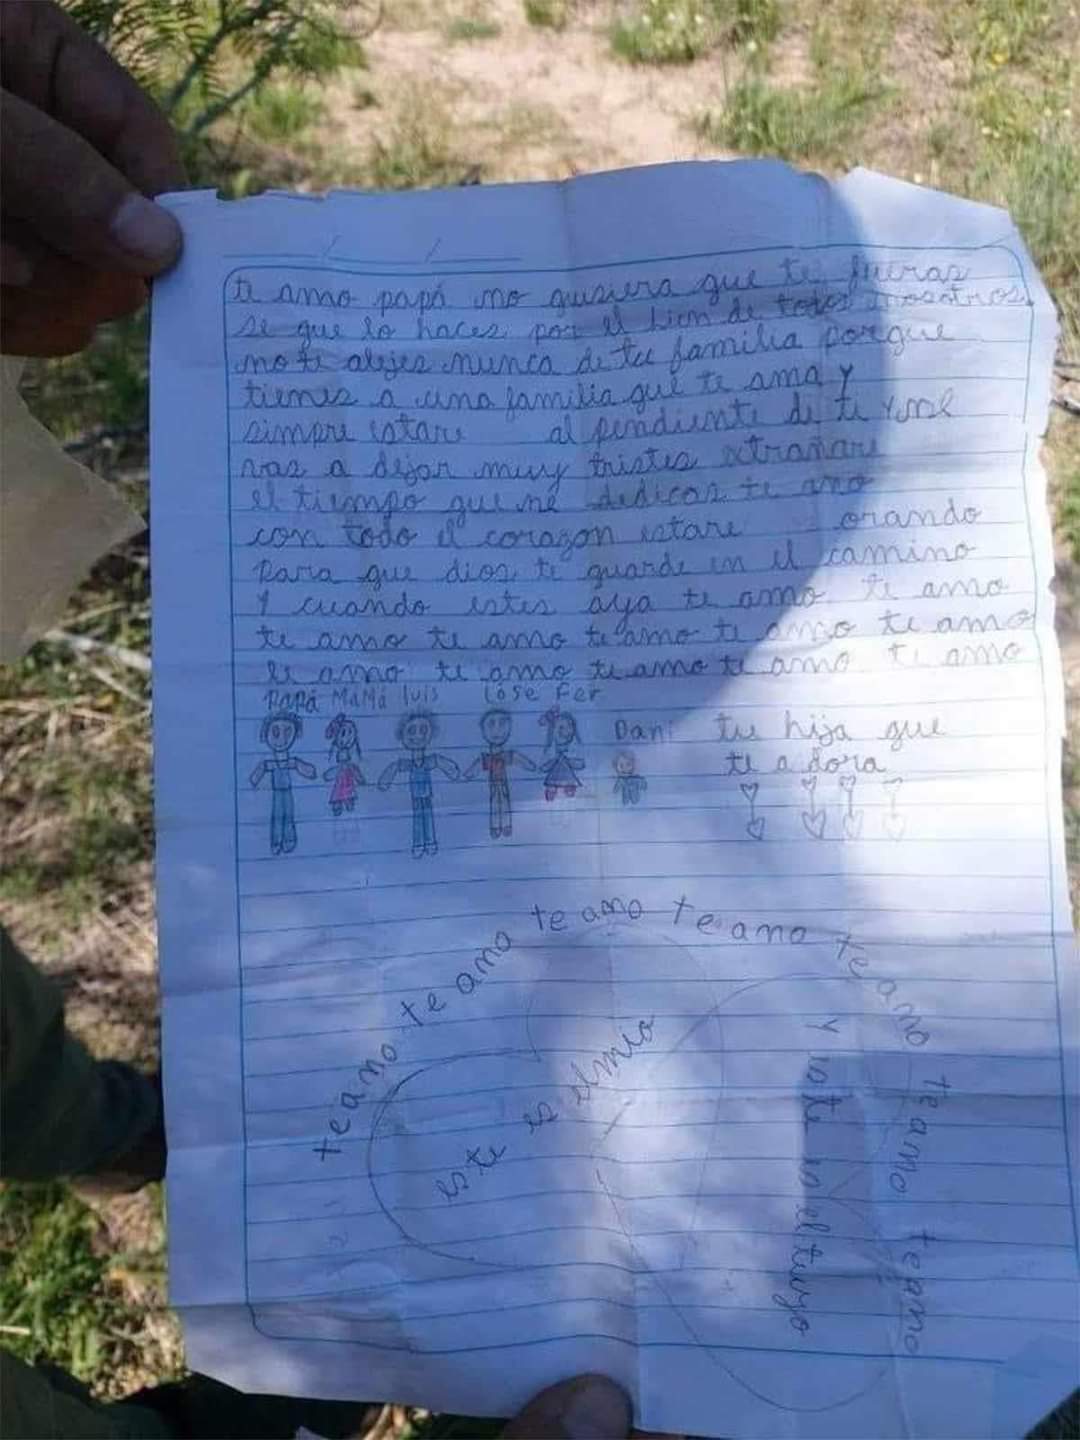 te amo papá no qusiera que te fueras
se que lo haces por el bien de todos nosotros
no te alejes nunca de tu familia porque
tienes a una familia que te ama y
simpre estare al pendiente de ti y me
vas a dejar muy tristes extrañare
el tiempo que me dedicas te amo
con todo el corazon estare orando
para que dios te guarde en el camino
y cuando estes aya te amo te amo
te amo te amo te amo te amo te amo
te amo te amo te amo te amo te amo
Papá MaMá luis Lose Fer
Dani tu hija que
te adora
te amo te amo te amo te amo te amo te amo te amo
este es el mio
y este es el tuyo